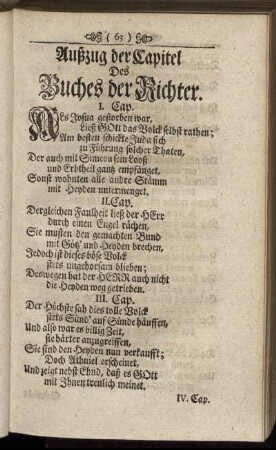 ( 63 )
Außzug der Capitel
Des
Buches der Richter.
I. Cap.
Als Josua gestorben war,
Ließ GOtt das Volck selbst rathen;
Am besten schickte Juda sich
zu Führung solcher Thaten,
Der auch mit Simeon sein Looß
und Erbtheil gantz empfänget,
Sonst wohnten alle andre Stämm
mit Heyden untermenget.
II. Cap.
Dergleichen Faulheit ließ der HErr
durch einen Engel rächen,
Sie musten den gemachten Bund
mit Götz' und Heyden brechen,
Jedoch ist dieses böse Volck
stets ungehorsam blieben;
Deswegen hat der HERR auch nicht
die Heyden weg getrieben.
III. Cap.
Der Höchste sah dies tolle Volck
stets Sünd' auf Sünde häuffen,
Und also war es billig Zeit,
sie härter anzugreiffen,
Sie sind den Heyden nun verkaufft;
Doch Athniel erscheinet,
Und zeigt nebst Ehud, daß es GOtt
mit Ihnen treulich meinet.
IV. Cap.